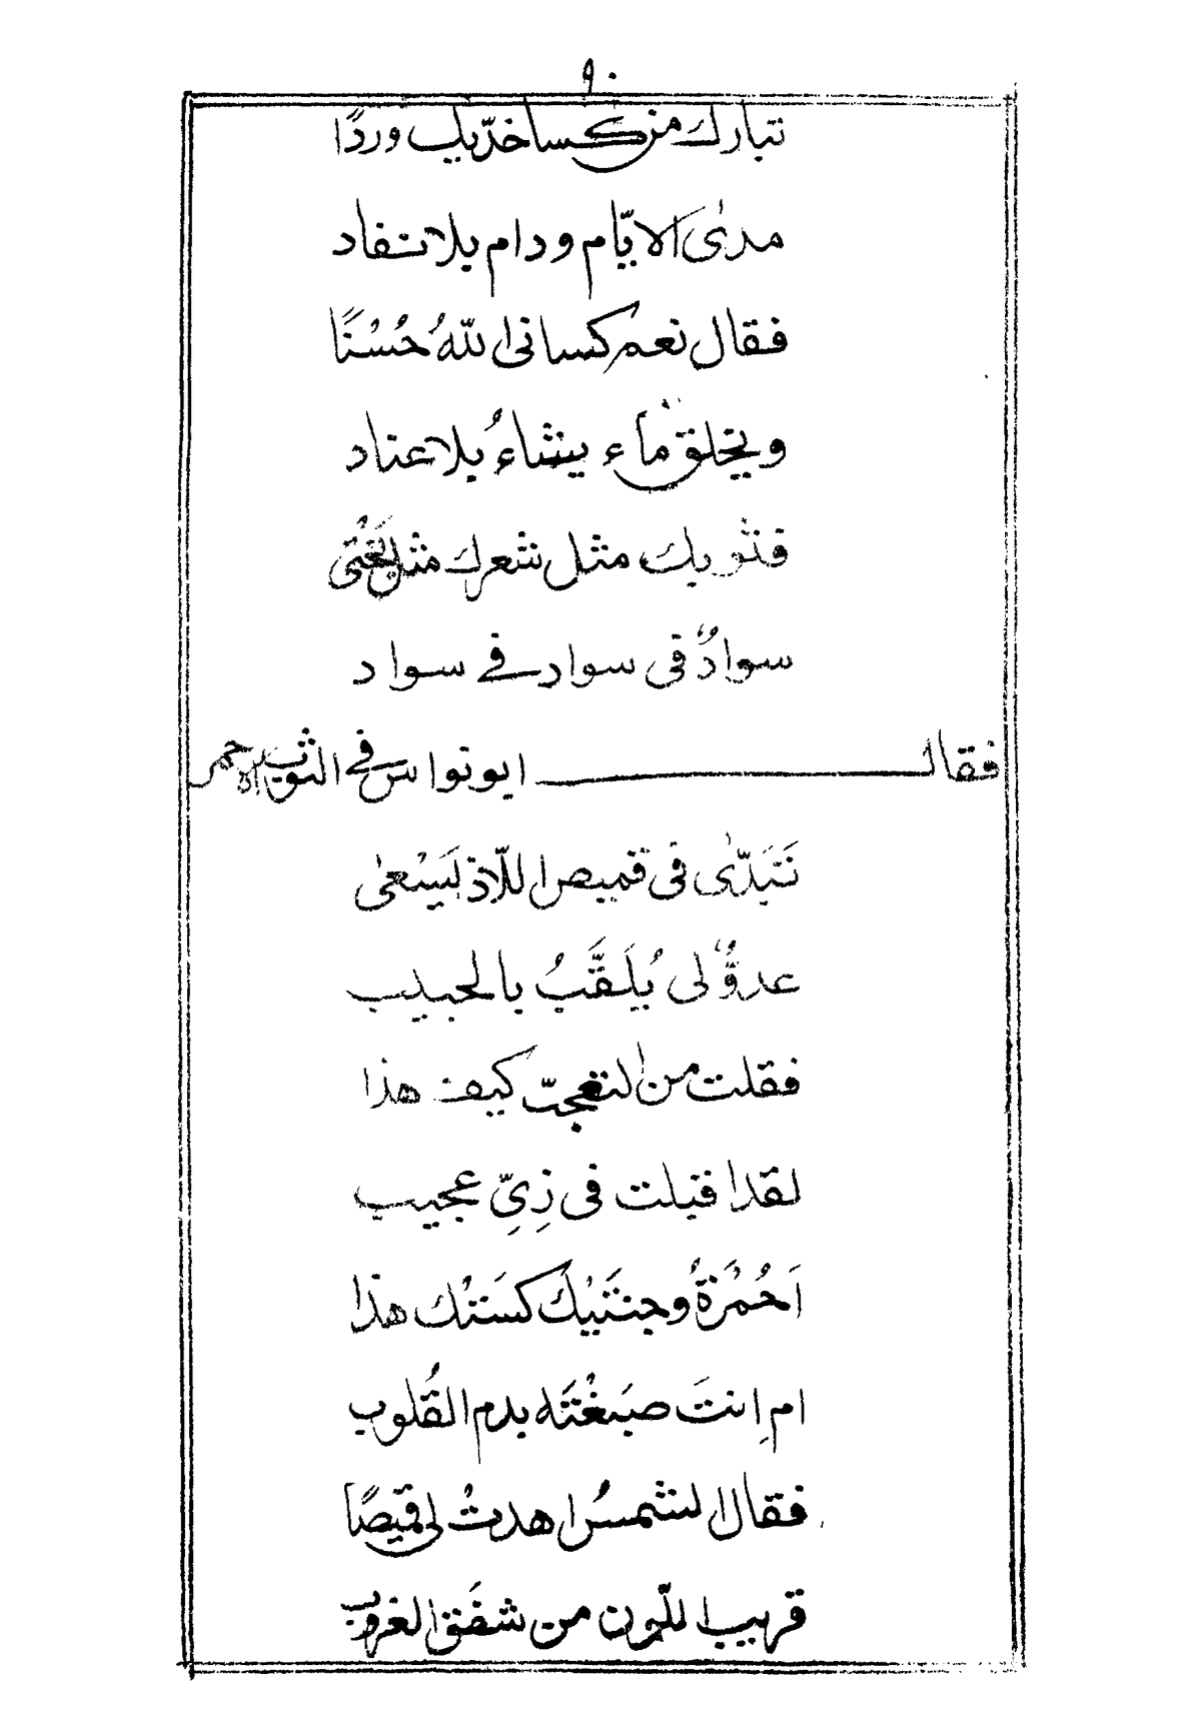 ٩٠
تبارك من كسا خدّيك وردًا
مدىٰ الايّام ودام بلا نفاد
فقال نعم كسانى اللهُ حُسْنًا
ويخلق ما يشاءُ بلا عناد
فثوبك مثل شعرك مثل بَخْتى
سوادٌ فى سواد فى سواد
فقال ابو نواس فى الثوب الاحمر
تَبَدّىٰ فى قميص اللّاذ يَسْعىٰ
عدوٌّ لى يُلَقَّبُ بالحبيب
فقلت من التعجّب كيف هذا
لقد اقبلت فى زِىِّ عجيب
اَحُمْرَةُ وجنتَيْكَ كسَتْكَ هذا
ام انتَ صبَغْتَه بدم القُلوب
فقال الشمسُ اهدتْ لى قميصًا
قريب اللّون من شفَق الغروب